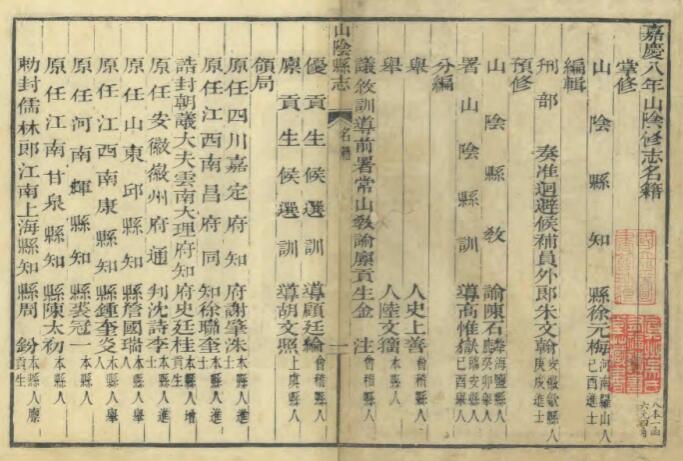 嘉慶八年山陰修志名籍
掌修
山陰縣知縣徐元梅河南羅山人己酉進士
編輯
刑部奏准迴避候補員外郎朱文翰安徽歙縣人庚戌進士
預修
山陰縣教諭陳石麟海鹽縣人癸卯舉人
署山陰縣訓導高惟嶽臨安縣人己酉舉人
分編
舉人史上善會稽縣人
舉人陸文籀本縣人
議敘訓導前署常山教諭廩貢生金注會稽縣人
山陰縣志
名籍
一
優貢生候選訓導顧廷綸會稽縣人
廩貢生候選訓導胡文照上虞縣人
領局
原任四川嘉定府知府謝肇洙本縣人進士
原任江西南昌府同知徐聯奎本縣人進士
誥封朝議大夫雲南大理府知府史廷桂本縣人增貢生
原任安徽徽州府通判沈詩李本縣人進士
原任山東邱縣知縣詹國瑞本縣人舉人
原任江西南康縣知縣鍾奎炎本縣人舉人
原任河南輝縣知縣裘冠一本縣人
原任江南甘泉縣知縣陳太初本縣人
勅封儒林郎江南上海縣知縣周鈖本縣人廩貢生
八本一函